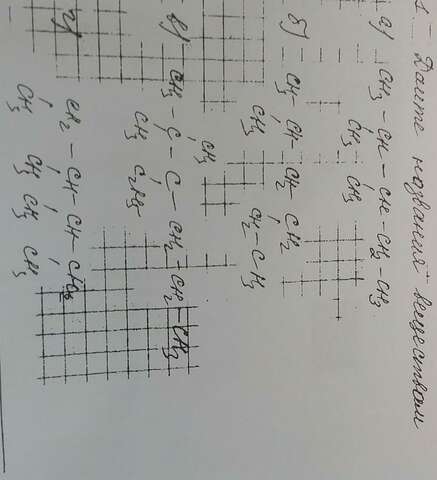 1. Дайте названия веществам
а) CH3 - CH - CH - CH2 - CH3
CH3 CH3
б) CH3 - CH - CH2 - CH2
CH3 CH2 - CH3
CH3
в) CH3 - C - C - CH2 - CH2 - CH3
CH3 C2H5
г)
CH2 - CH - CH - CH2
CH3 CH3 CH3 CH3